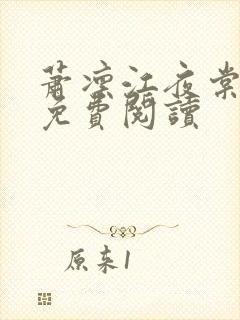 蕭凛江夜棠
免費閱讀
原来1